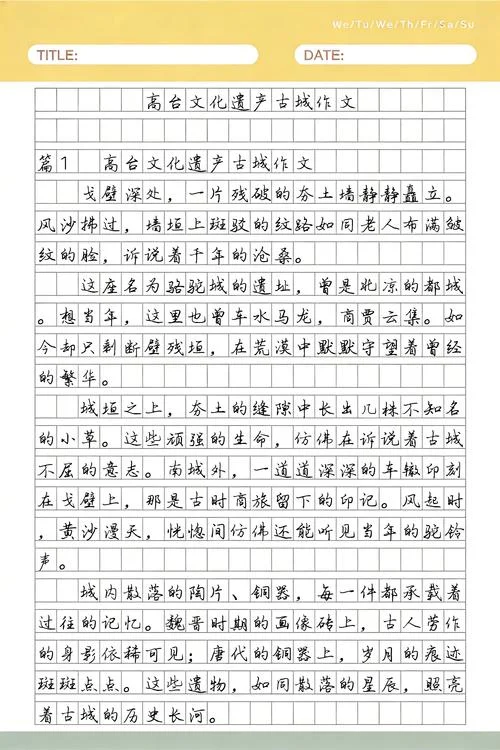 We/Tu/We/Th/Fr/Sa/Su
TITLE: DATE:
高台文化遗产古城作文
篇1 高台文化遗产古城作文
戈壁深处，一片残破的夯土墙静静矗立。
风沙拂过，墙垣上斑驳的纹路如同老人布满皱
纹的脸，诉说着千年的沧桑。
这座名为骆驼城的遗址，曾是北凉的都城
。想当年，这里也曾车水马龙，商贾云集。如
今却只剩断壁残垣，在荒漠中默默守望着曾经
的繁华。
城垣之上，夯土的缝隙中长出几株不知名
的小草。这些顽强的生命，仿佛在诉说着古城
不屈的意志。南城外，一道道深深的车辙印刻
在戈壁上，那是古时商旅留下的印记。风起时
，黄沙漫天，恍惚间仿佛还能听见当年的驼铃
声。
城内散落的陶片、铜器，每一件都承载着
过往的记忆。魏晋时期的画像砖上，古人劳作
的身影依稀可见；唐代的铜器上，岁月的痕迹
斑斑点点。这些遗物，如同散落的星辰，照亮
着古城的历史长河。